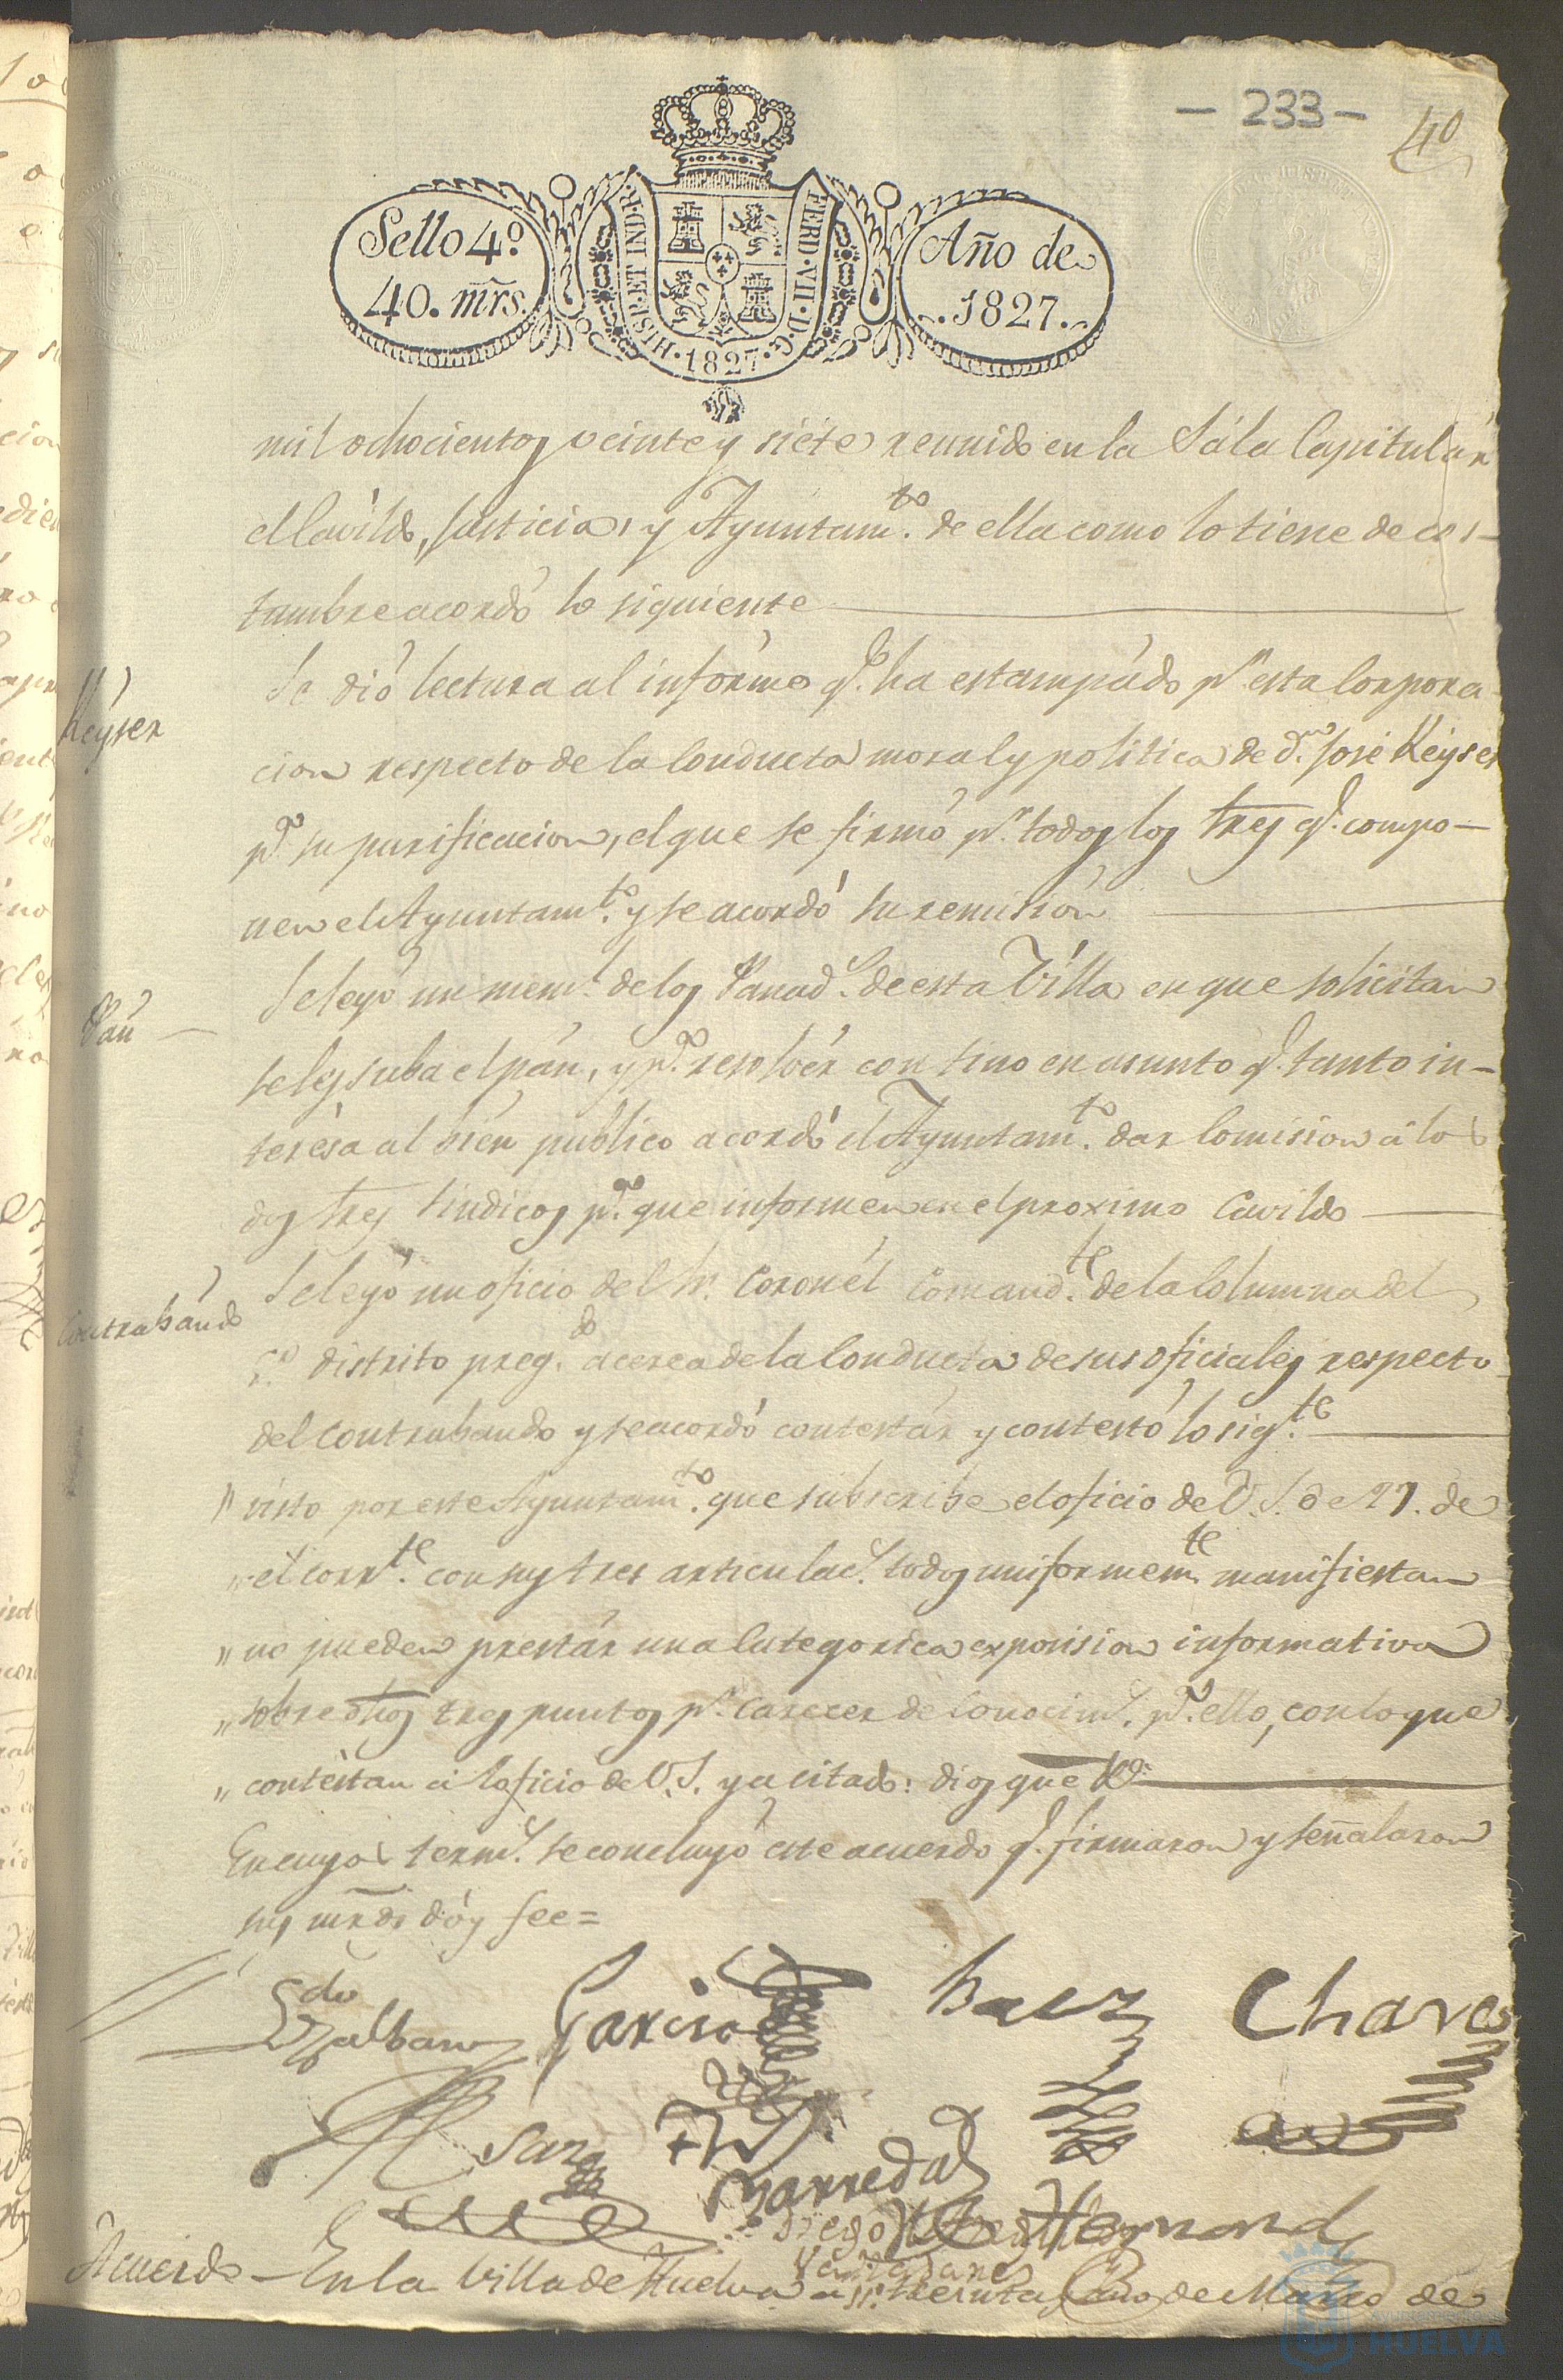 — 233 —
40
Sello 4º
40. mrs.
HISP. ET IND. R.
FERD. VII. D. G.
1827.
Año de
1827.
mil ochocientos veinte y siéte reunido en la Sála Capitulár
el Cavildo, Justicia, y Ayuntam.to de ella como lo tiene de cos-
tumbre acordó lo siguiente
Keyser
Se dió lectura al infórme q.e ha estampádo p.r esta Corpora
cion respecto de la conducta moral y politica de d.n José Keyser
p.a su purificacion, el que se firmó p.r todos los Sres q.e compo-
nen el Ayuntam.to y se acordó su remisión
Pan
Se leyó un mem.l de los Panad.s de esta Villa en que solicitan
se les suba el pán, y p.a resolvér con tino en asunto q.e tanto in-
terèsa al bien publico acordó el Ayuntam.to dar Comision á lo
dos Sres Sindicos p.a que informen en el proximo Cavildo
Contrabándo
Se leyó un oficio del Sr. Coronél Comand.te de la Columna del
distrito preg.do acerca de la Conducta de sus oficiales respecto
del contrabando y se acordó contestár y contestó lo sig.te
" visto por este Ayuntam.to que subscribe el oficio de V. S. de 27. de
" el corr.te con sus tres articulac.s todos uniformem.te manifiestan
" no pueden prestár una Categorica exposision informativa
" sobre dhos tres puntos p.r carecer de conocim.s p.a ello, con lo que
" contèstan á l oficio de V. S. ya citado: dios que &.
En cuyos term.s se concluyó este acuerdo q.e firmaron y señalaron
sus mrds dóy fee=
Galban
Garcia
Baez
Chaves
Sanz
Barreda
Diego
Hernand
Acuerdo — En la Villa de Huelva á treinta de Marzo de
HUELVA